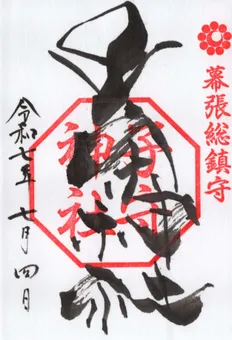 幕張総鎮守
子守
神社
令和七年 七月 四日